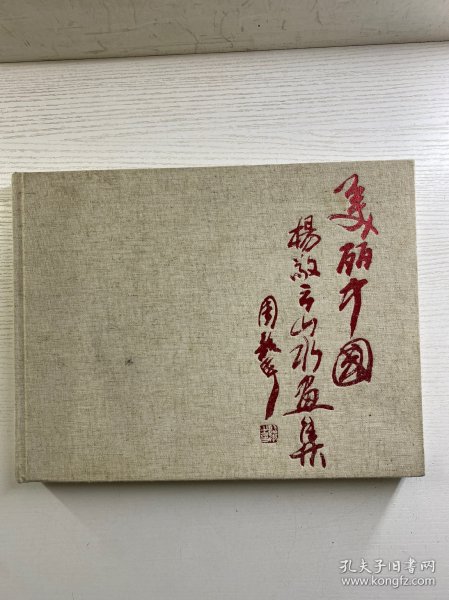 美丽中国
楊敬云山水画集
孔夫子旧书网
www.kongfz.com